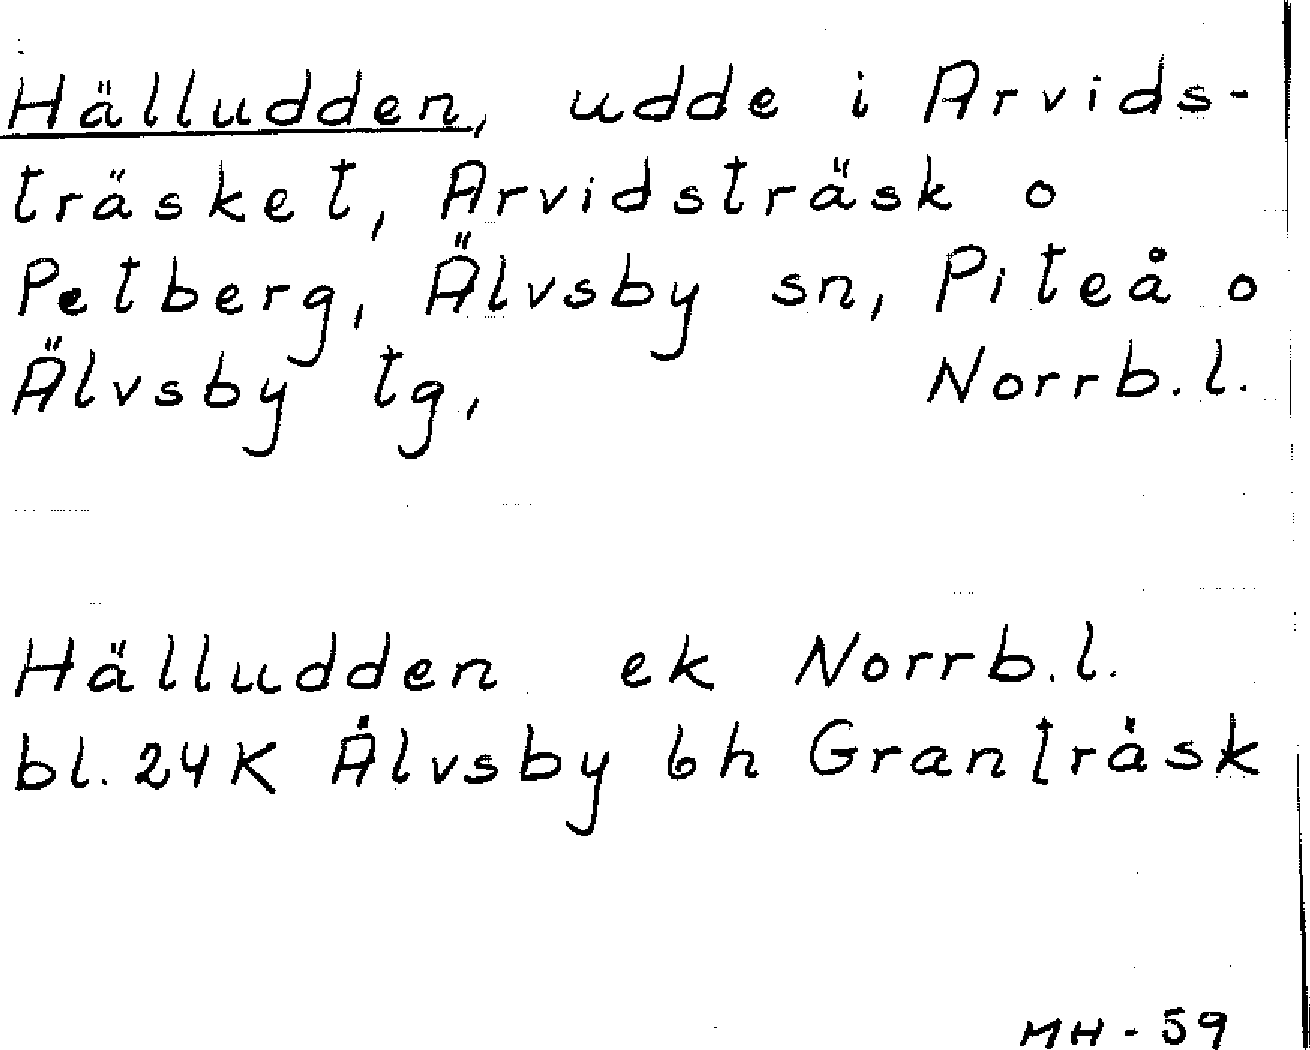 Hälludden, udde i Arvids-
träsket, Arvidsträsk o
Petberg, Älvsby sn, Piteå o
Älvsby tg, Norrb.l.
Hälludden ek Norrb.l.
bl. 24K Älvsby 6h Granträsk
MH-59